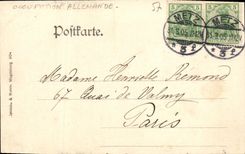 OCCUPATION ALLEMANDE
57
5 5
METZ METZ
Postkarte.
Madame Henriette Remond
67 Quai de Valmy
Paris